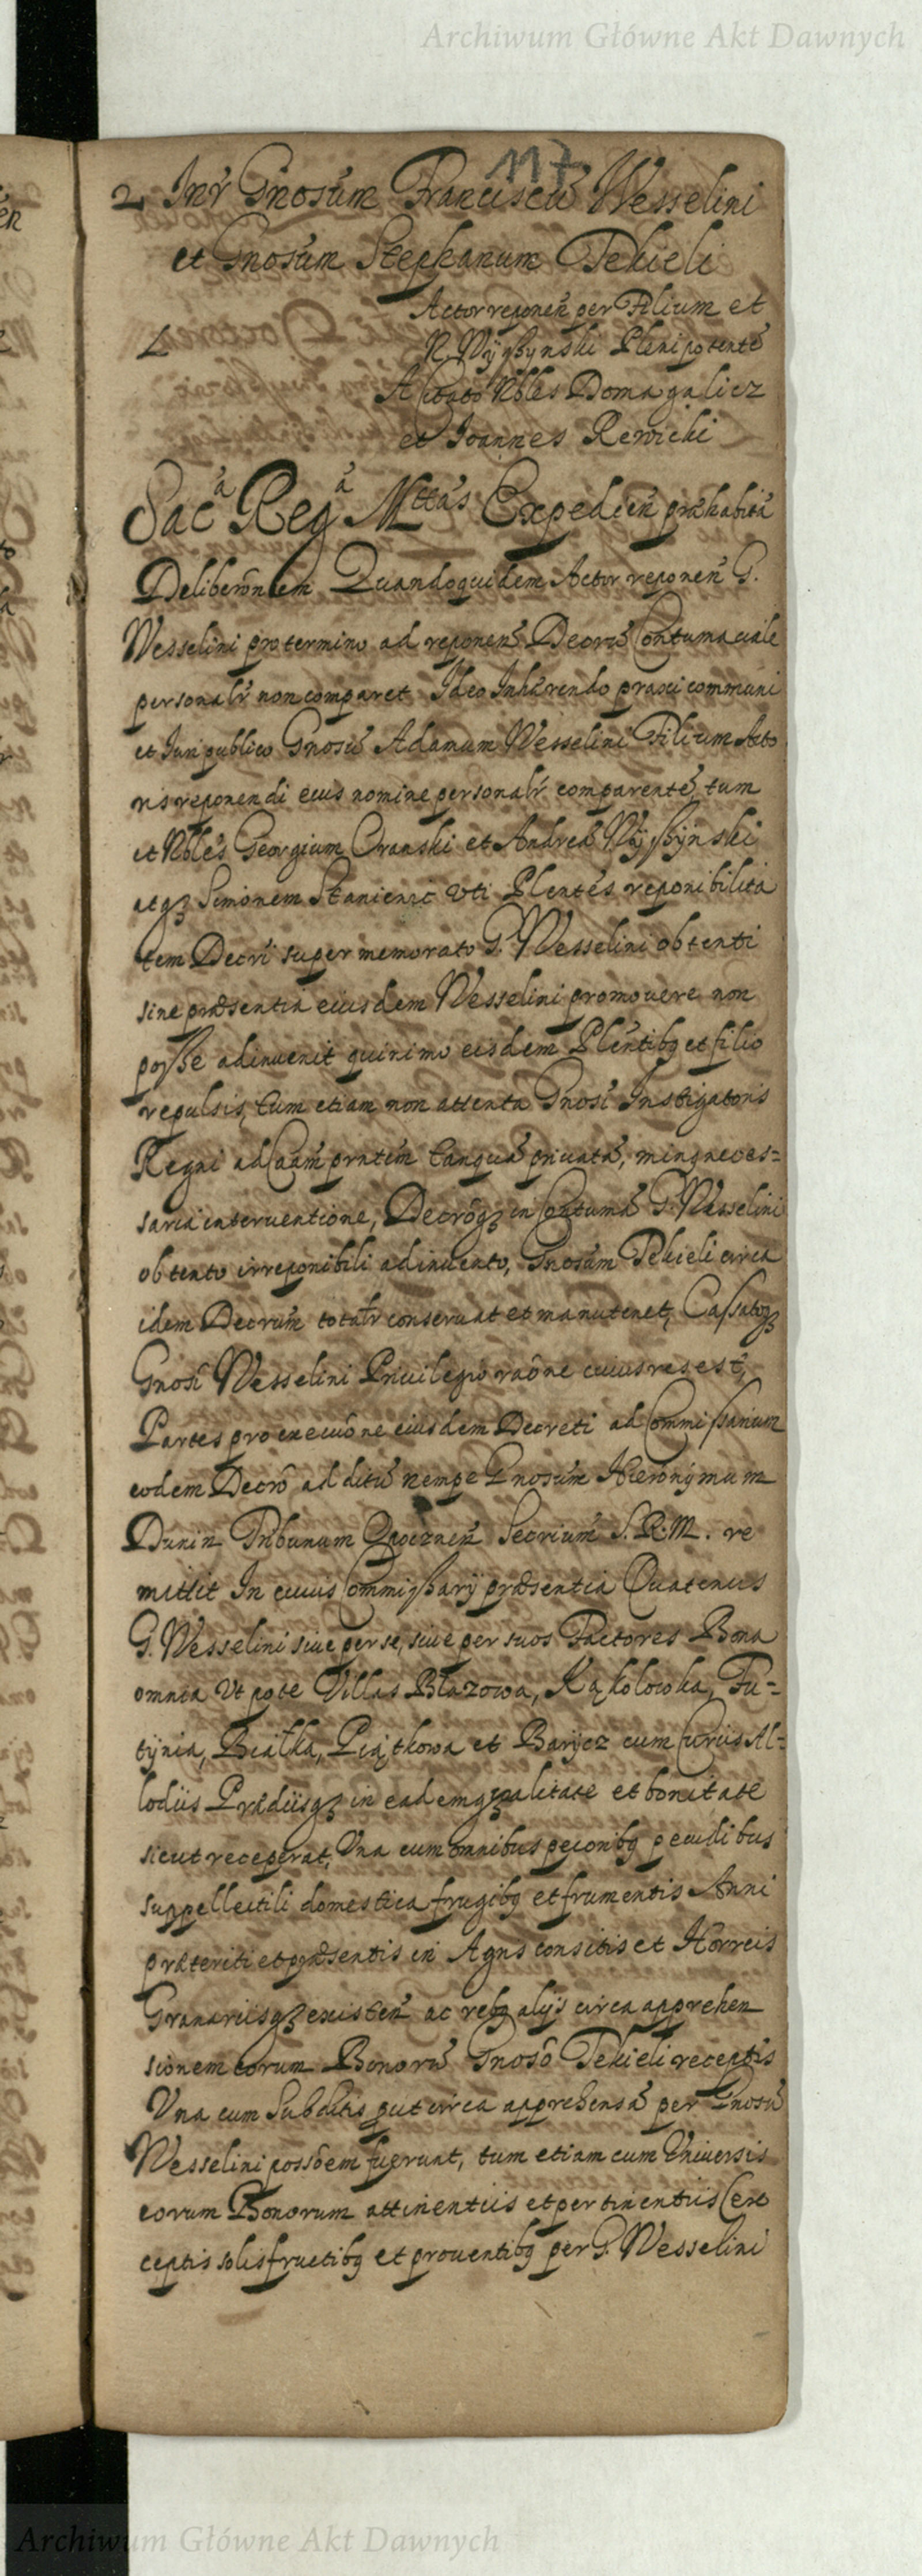 Archiwum Główne Akt Dawnych
117
2 Intr Gnosum Franciscũ Wesselini
et Gnosum Stephanum Tekieli
Actor reponeñ per Filium et
L N. Wyszynski Plenipotentẽ
A Citato Nobles Domagalicz
et Joannes Rewicki
Saca Rega Mttas Expedieñ præhabitã
Deliberõnem Quandoquidem Actor reponeñ G.
Wesselini pro termino ad reponeñ Decrũ Contumaciale
personalr non comparet Ideo Inhærendo praxi communi
et Juri publico Gnosũ Adamum Wesselini Filium Acto
ris reponendi eius nomine personalr comparentẽ, tum
et Nobles Georgium Oranski et Andreã Wyszynski
atqз Simonem Staniewic Uti Plentes reponibilita
tem Decri super memorato G. Wesselini obtenti
sine præsentia eiusdem Wesselini promovere non
posse adinuenit quinimo eisdem Plentibq et filio
repulsis, tum etiam non attenta Gnosi Instigatoris
Regni ad Caam prntem tanquã priuatã, minq neces=
saria interuentione, Decroqз in Contumã G. Wesselini
obtento irreponibili adinuento, Gnosum Tekieli circa
idem Decrum totalr conseruat et manutenet, Cassatoqз
Gnosi Wesselini Priuilegio raõne cuius res est,
Partes pro executione eiusdem Decreti ad Commissarium
eodem Decro additũ nempe Gnosum Hieronymum
Dunin Tribunum Opocznen Secrium S. R. M. re
mittit In cuius Commissarij præsentia Quatenus
G. Wesselini siue per se, siue per suos Factores Bona
omnia Ut pote Villas Błazowa, Kąkolowka, Fu=
tynia, Białka, Piątkowa et Barycz cum Curiis Al=
lodiis Prædiisqз in eadem qualitate et bonitate
sicut receperat, Una cum omnibus pecoribq pecudibus
suppellectili domestica frugibq et frumentis Anni
præteriti et præsentis in Agris consitis et Horreis
Granariisqз existeñ ac rebq alijs circa apprehen
sionem eorum Bonorũ Gnoso Tekieli receptis
Una cum Subditis put circa apprehensã per Gnosũ
Wesselini possõem fuerunt, tum etiam cum Universis
eorum Bonorum attinentiis et pertinentiis (ex
ceptis solis fructibq et prouentibq per G. Wesselini
Archiwum Główne Akt Dawnych